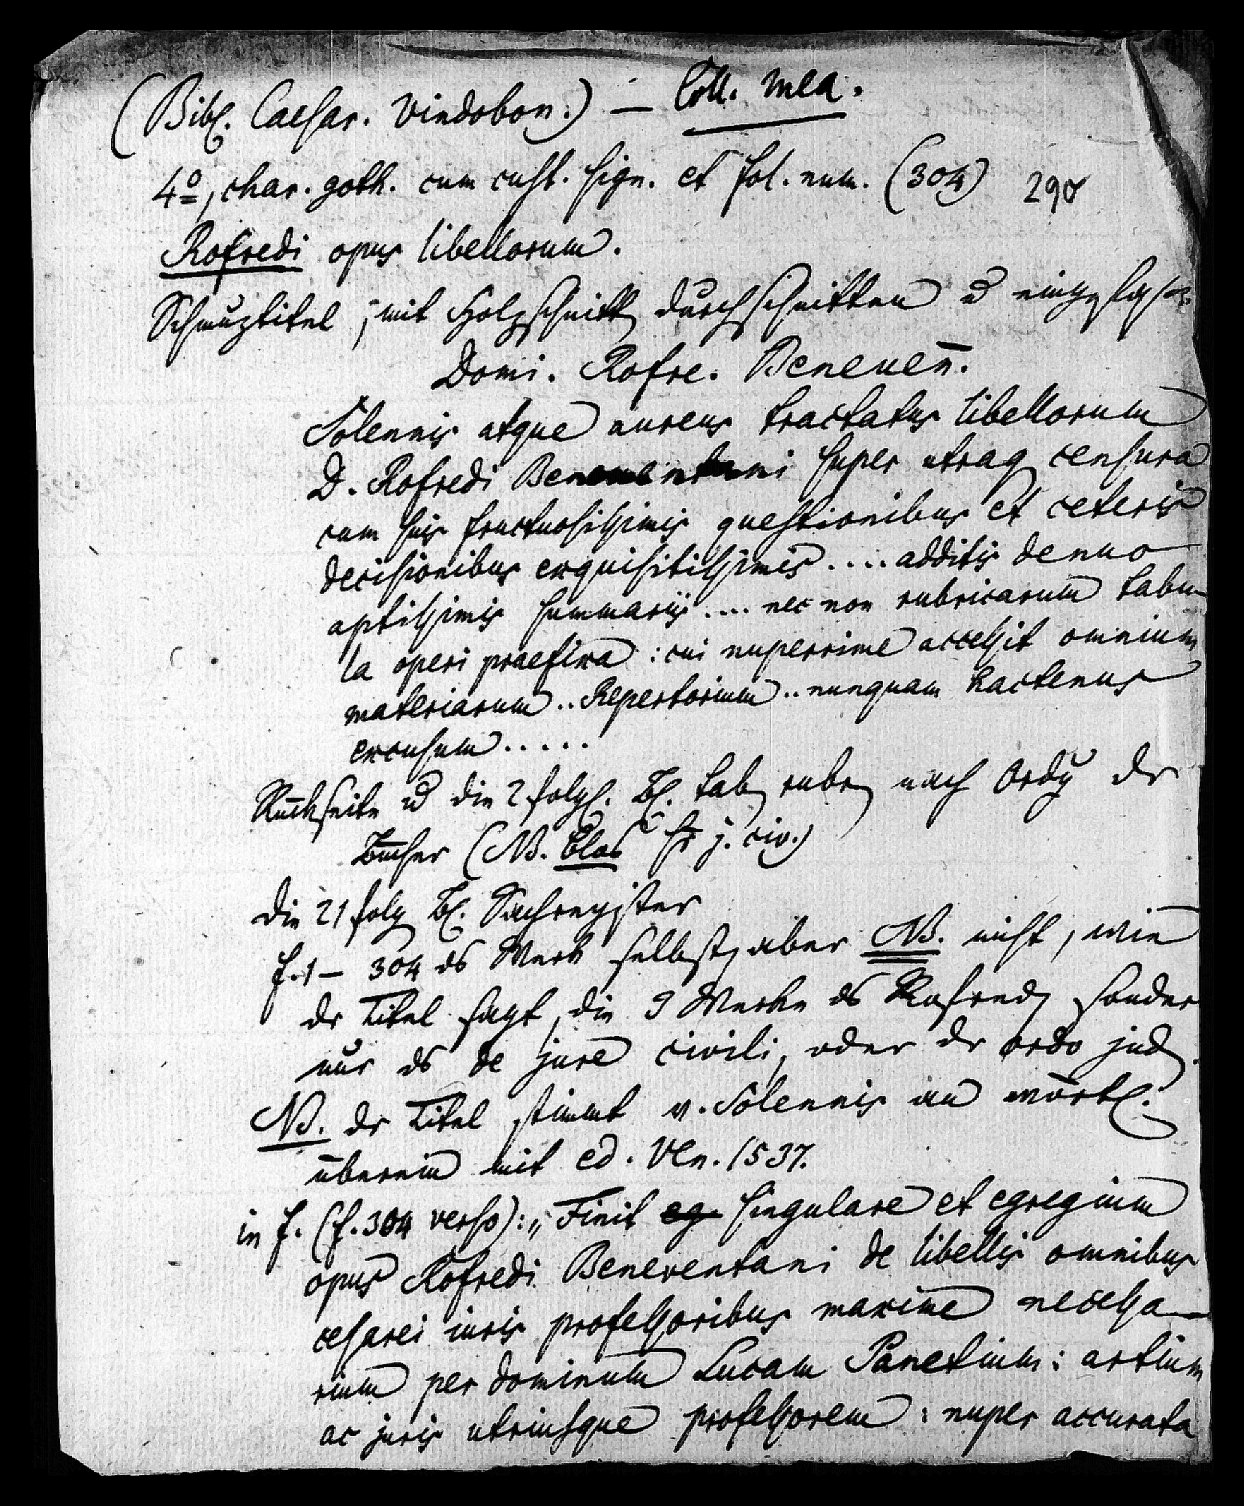 (Bibl. Caesar. Vindobon.) – Coll. mea.
4º, char. goth. cum cust. sign. et fol. num. (304) 290
Rofredi opus libellorum.
Schmuztitel, mit Holzschnitt durchschnitten u
Domi. Rofre. Beneuen̄.
Solennis atque aureus tractatus libellorum
D. Rofredi Beneventani super utraq censura
cum suis fructuosissimis questionibus et ceteris
decisionibus exquisitissimis .... additis denuo
aptissimis summariis .... nec non rubricarum tabu-
la operi praefixa : cui nuperrime accessit omnium
materiarum .. Repertorium .. nunquam hactenus
excusum .....
Rückseite u die 2 folg. Bl. tab rubr nach Ordg der
Bücher (NB. j. civ.)
die 21 folg Bl. Sachregister
f. 1 – 304 ds Werk selbst, aber NB. nicht, wie
dr Titel sagt, die 9 Werke ds Rofred, sonder
nur ds de jure civili, oder dr ordo jud.
NB. dr Titel stimmt v. Solennis an wörtl.
überein mit ed. Ven. 1537.
in f. (f. 304 verso): „Finit eg singulare et egregium
opus Rofredi Beneventani de libellis omnibus
cesarei iuris professoribus maxime necessa-
rium per dominum Lucam Panetium : artium
ac juris utriusque professorem : nuper accurata